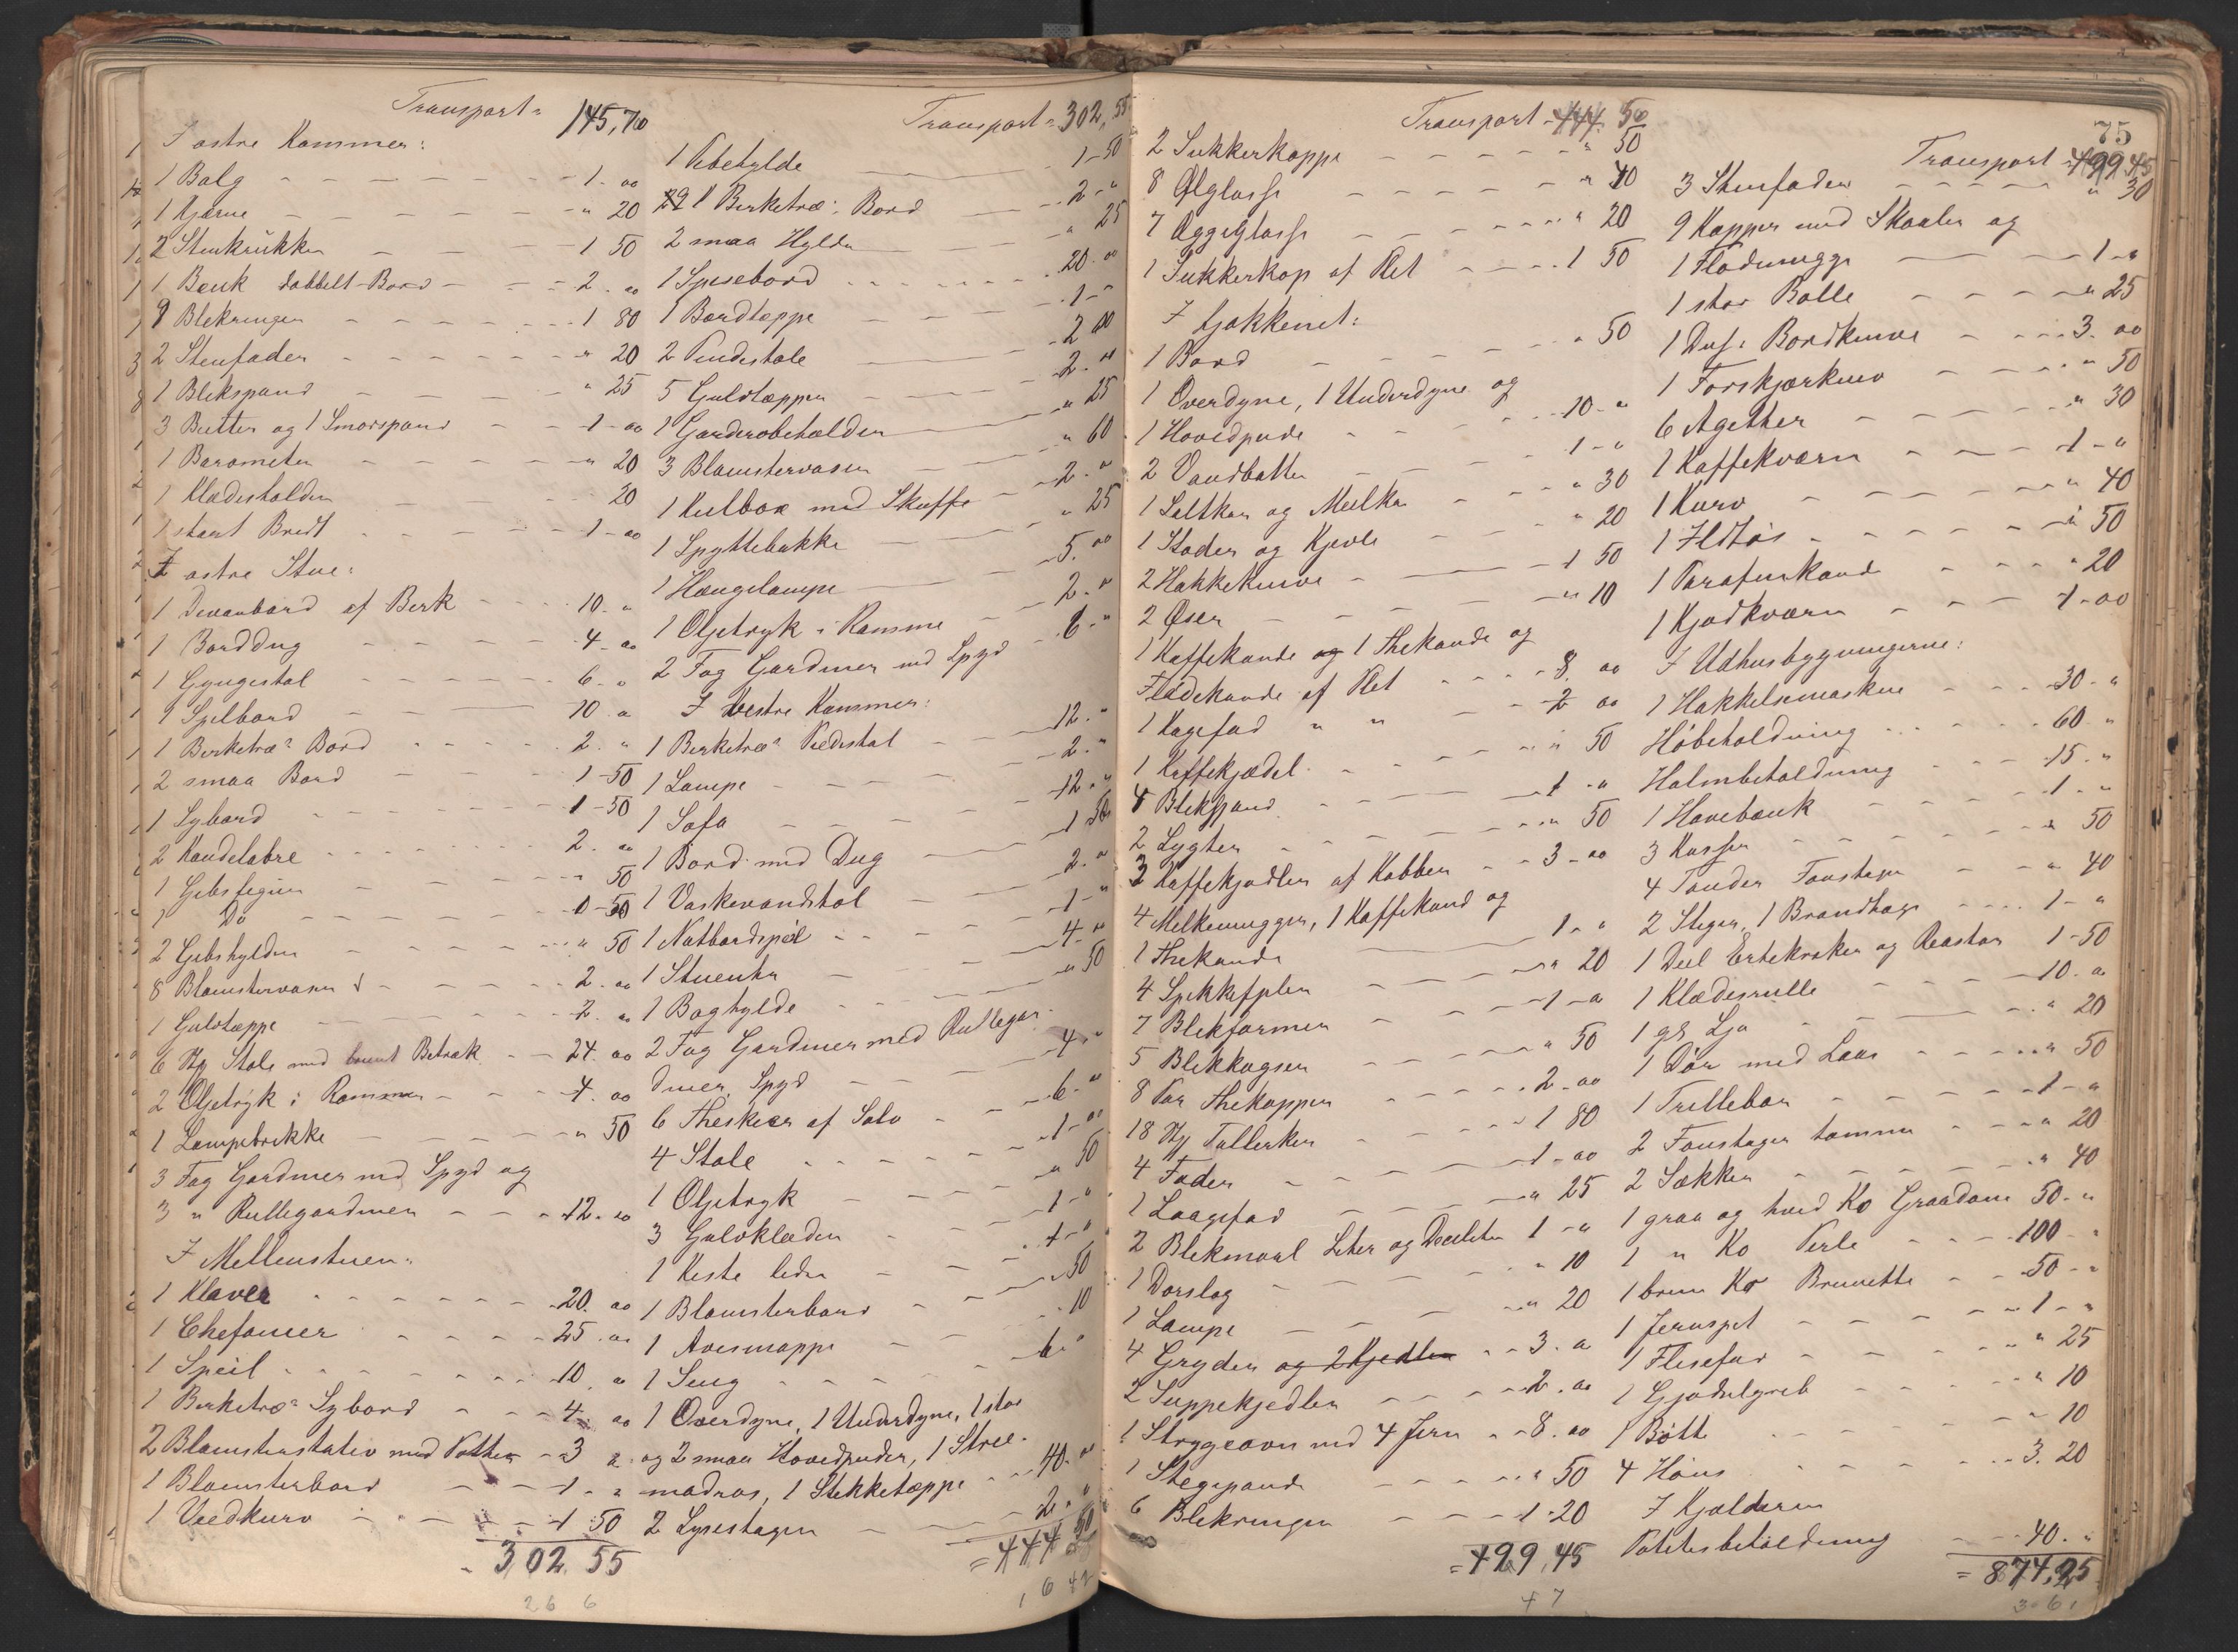 Transport = 145,70
I østre Kammer:
1 Balg 1-00
1 Kjærne " 20
2 Stenkrukker 1 50
1 Bænk dobbelt-Bord 2.00
9 Blekringer 1 80
2 Stenfader " 20
1 Blekspand " 25
3 Bütter og 1 Smørspand 1-00
1 Barometer " 20
1 Klædesholder 20
1 stort Bredt 1-00
I østre Stue:
1 Divanbord af Berk 10."
1 Borddug 4-00
1 Gyngestol 6-"
1 Spilbord 10 "
1 Berketræs Bord 2."
2 smaa Bord 1-50
1 Sybord 1-50
2 Kandelabre 2."
1 Gibsfigur " 50
1 Do 0-50
2 Gibshylder " 50
8 Blomstervaser 2.00
1 Gulvtæppe 2."
6 Stk Stole med brunt Betræk 24.00
2 Oljetryk i Rammer 4.00
1 Lampebrikke " 50
3 Fag Gardiner med Spyd og
3 " Rullegardiner 12.00
I Mellemstuen:
1 Klaver 20.00
1 Chefonier 25.00
1 Speil 10."
1 Berketræs Sybord 4.00
2 Blomsterstativ med Potter 3 "
1 Blomsterbord 1."
1 Vedkurv 1 50
302.55
Transport = 302,55
1 Vibehylde 1-50
1 Berketræ: Bord 2-"
2 smaa Hylder " 25
1 Spisebord 20.00
1 Bordtæppe 1-"
2 Pindestole 2 00
5 Gulvtæpper 2."
1 Garderobeholder " 25
3 Blomstervaser " 60
1 Kulbox med Skuffe 2."
1 Spyttebakke " 25
1 Hængelampe 5.00
1 Oljetryk i Ramme 2."
2 Fag Gardiner med Spyd 6-"
I Vestre Kammer:
1 Berketræs Piedestal 12."
1 Lampe 2."
1 Sofa 12."
1 Bord med Dug 1 50
1 Vaskevandstol 2."
1 Natbordspeil 1-"
1 Stueuhr 4-00
1 Boghylde " 50
2 Fag Gardiner med Rullegar-
diner, Spyd 4 "
6 Theskeer af Sølv 6-"
4 Stole 1-00
1 Oljetryk " 50
3 Gulvklæder 1-"
1 Keste leder 1-"
1 Blomsterbord " 50
1 Avismappe 10
1 Seng 6."
1 Overdyne, 1 Underdyne, 1 stor
og 2 smaa Hovedpuder, 1 Strie-
madras, 1 Stikketæppe 40.00
2 Lysestager 2."
= 444 50
Transport = 444.50
2 Sukkerkoppe " 50
8 Ølglasse " 40
7 Æggeglasse " 20
1 Sukkerkop af Plet 1 50
I Kjøkkenet:
1 Bord " 50
1 Overdyne, 1 Underdyne og
1 Hovedpude 10-"
2 Vandbøtter 1-"
1 Saltkar og Melkar " 30
1 Stader og Kjevle " 20
2 Hakkeknive 1 50
2 Øser " 10
1 Kaffekande og 1 Thekande og
Flødekande af Plet 8.00
1 Kagefad " " 2 00
1 Kaffekjedel " 50
4 Blekspand 1 "
2 Lygter " 50
3 Kaffekjedler af Kobber 3-00
4 Melkemugger, 1 Kaffekand og
1 Thekande 1-"
4 Spikkefjeler " 20
7 Blekformer 1-"
5 Blekkagser " 50
8 Par Thekopper 2-00
18 Stk Tallerken 1 80
4 Fader 1-00
1 Laagefad " 25
2 Blekmaal Liter og Deciliter 1-"
1 Dørslag " 10
1 Lampe " 20
4 Gryder og 2 Kjedler 3."
2 Suppekjedler 2.00
1 Strygeovn med 4 Jern 8.00
1 Stegepande " 50
6 Blekringer 1-20
= 499,45
75
Transport = 499,45
3 Stenfader " 30
9 Kopper med Skaaler og
1 Flødemugge 1-"
1 stor Bolle " 25
1 Dus: Bordknive 3.00
1 Forskjærkniv " 50
6 Agetter " 30
1 Kaffekværn 1-"
1 Kurv " 40
1 Ildtøi " 50
1 Parafinkande " 20
1 Kjødkværn 1-00
I Udhusbygningerne:
1 Hakkelsmaskine 30-"
Høbeholdning 60."
Halmbeholdning 15."
1 Havebænk 1-"
3 Kasser " 50
4 Tønder Foustager " 40
2 Steger, 1 Brandhage 1-"
1 Deel Ertekroker og Reastør 1-50
1 Klædesrulle 10.00
1 gl Lja " 20
1 Dør med Laas " 50
1 Trillebør 1-"
2 Foustager tomme " 20
2 Sækker " 40
1 graa og hvid Ko Graadøne 50-"
1 " Ko Perle 100-
1 brun Ko Brunette 50-"
1 Jernspet 1-"
1 Flisefad " 25
1 Gjødselgreb " 10
1 Bøtte " 10
4 Høns 3.20
I Kjælderen
Potetesbeholdning 40."
= 874,25